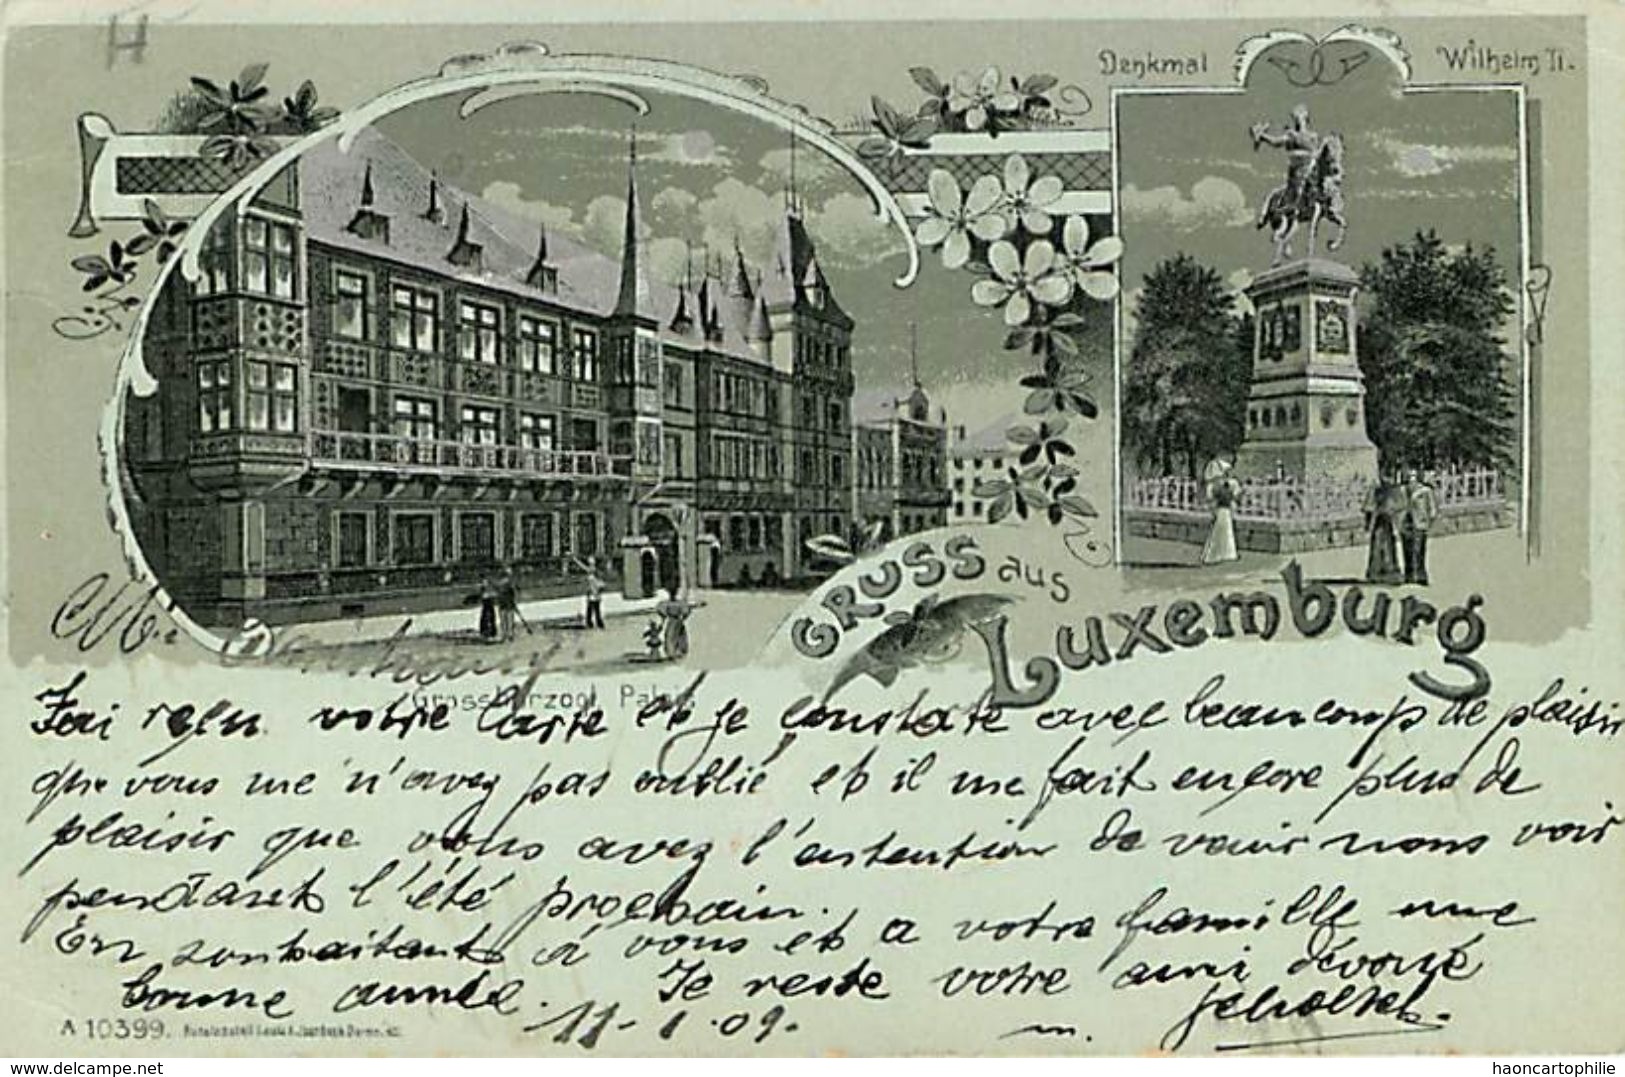 H
Denkmal Wilhelm II.
GRUSS aus
Luxemburg
M.
Grossherzogl. Palais
J'ai reçu votre carte et je constate avec beaucoup de plaisir
que vous me n'avez pas oublié et il me fait encore plus de
plaisir que vous avez l'intention de venir nous voir
pendant l'été prochain.
En souhaitant à vous et a votre famille une
bonne année. Je reste votre ami dévoué
11-1-09.
A 10399.
delcampe.net
haoncartophilie